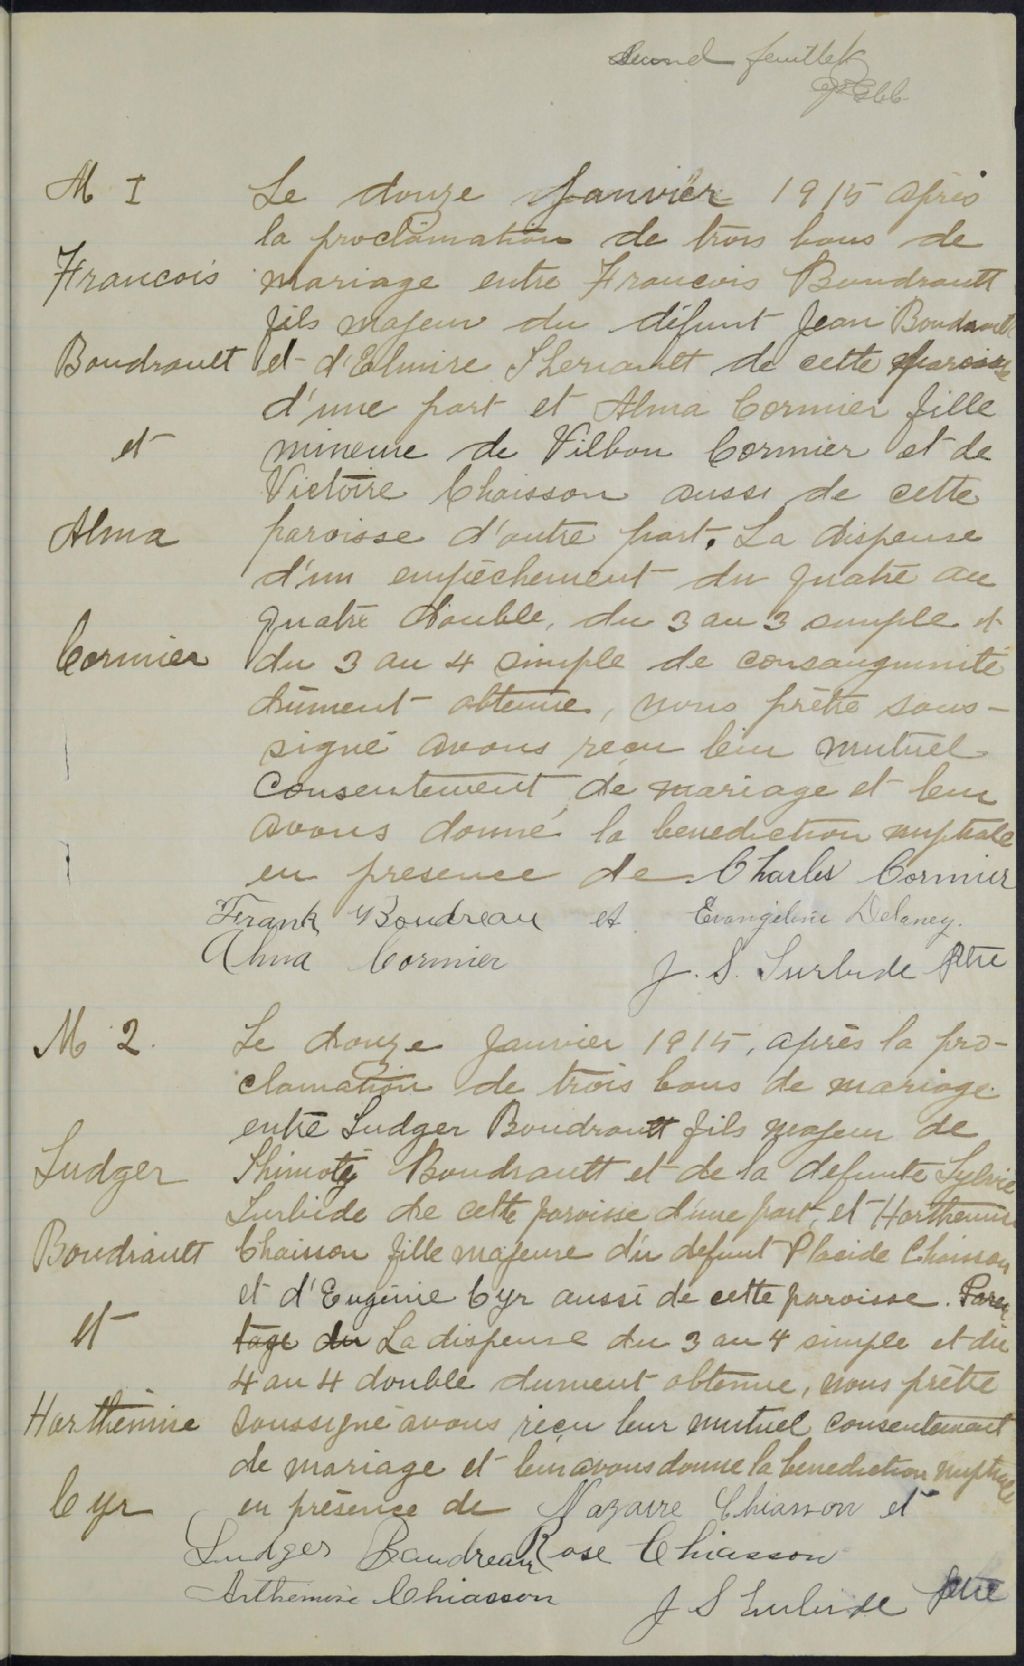 second feuillet
M I
Francois
Boudrault
et
Alma
Cormier
Le douze Janvier 1915 après
la proclamation de trois bans de
mariage entre Francois Boudrault
fils majeur du défunt Jean Boudrault
et d'Elmire Theriault de cette paroisse
d'une part et Alma Cormier fille
mineure de Vilbon Cormier et de
Victoire Chaisson aussi de cette
paroisse d'autre part. La dispense
d'un empêchement du quatre au
quatre double, du 3 au 3 simple et
du 3 au 4 simple de consanguinité
dûment obtenue, nous prêtre sous-
signé avons reçu leur mutuel
consentement de mariage et leur
avons donné la benediction nuptiale
en presence de Charles Cormier
Frank Boudreau et Evangeline Delaney.
Alma Cormier
J. S. Turbide Ptre
M 2.
Ludger
Boudrault
et
Harthémise
Cyr
Le douze Janvier 1915, après la pro-
clamation de trois bans de mariage
entre Ludger Boudrault fils majeur de
Thimoté Boudrault et de la defunte Sylvie
Turbide de cette paroisse d'une part, et Harthemise
Chaisson fille majeure du defunt Placide Chaisson
et d'Eugénie Cyr aussi de cette paroisse. Paren
tage du La dispense du 3 au 4 simple et du
4 au 4 double dument obtenue, nous prêtre
soussigné avons reçu leur mutuel consentement
de mariage et leur avons donne la benediction nuptiale
en présence de Nazaire Chiasson et
Ludger Boudreau Rose Chiasson
Arthemise Chiasson
J S Turbide Ptre